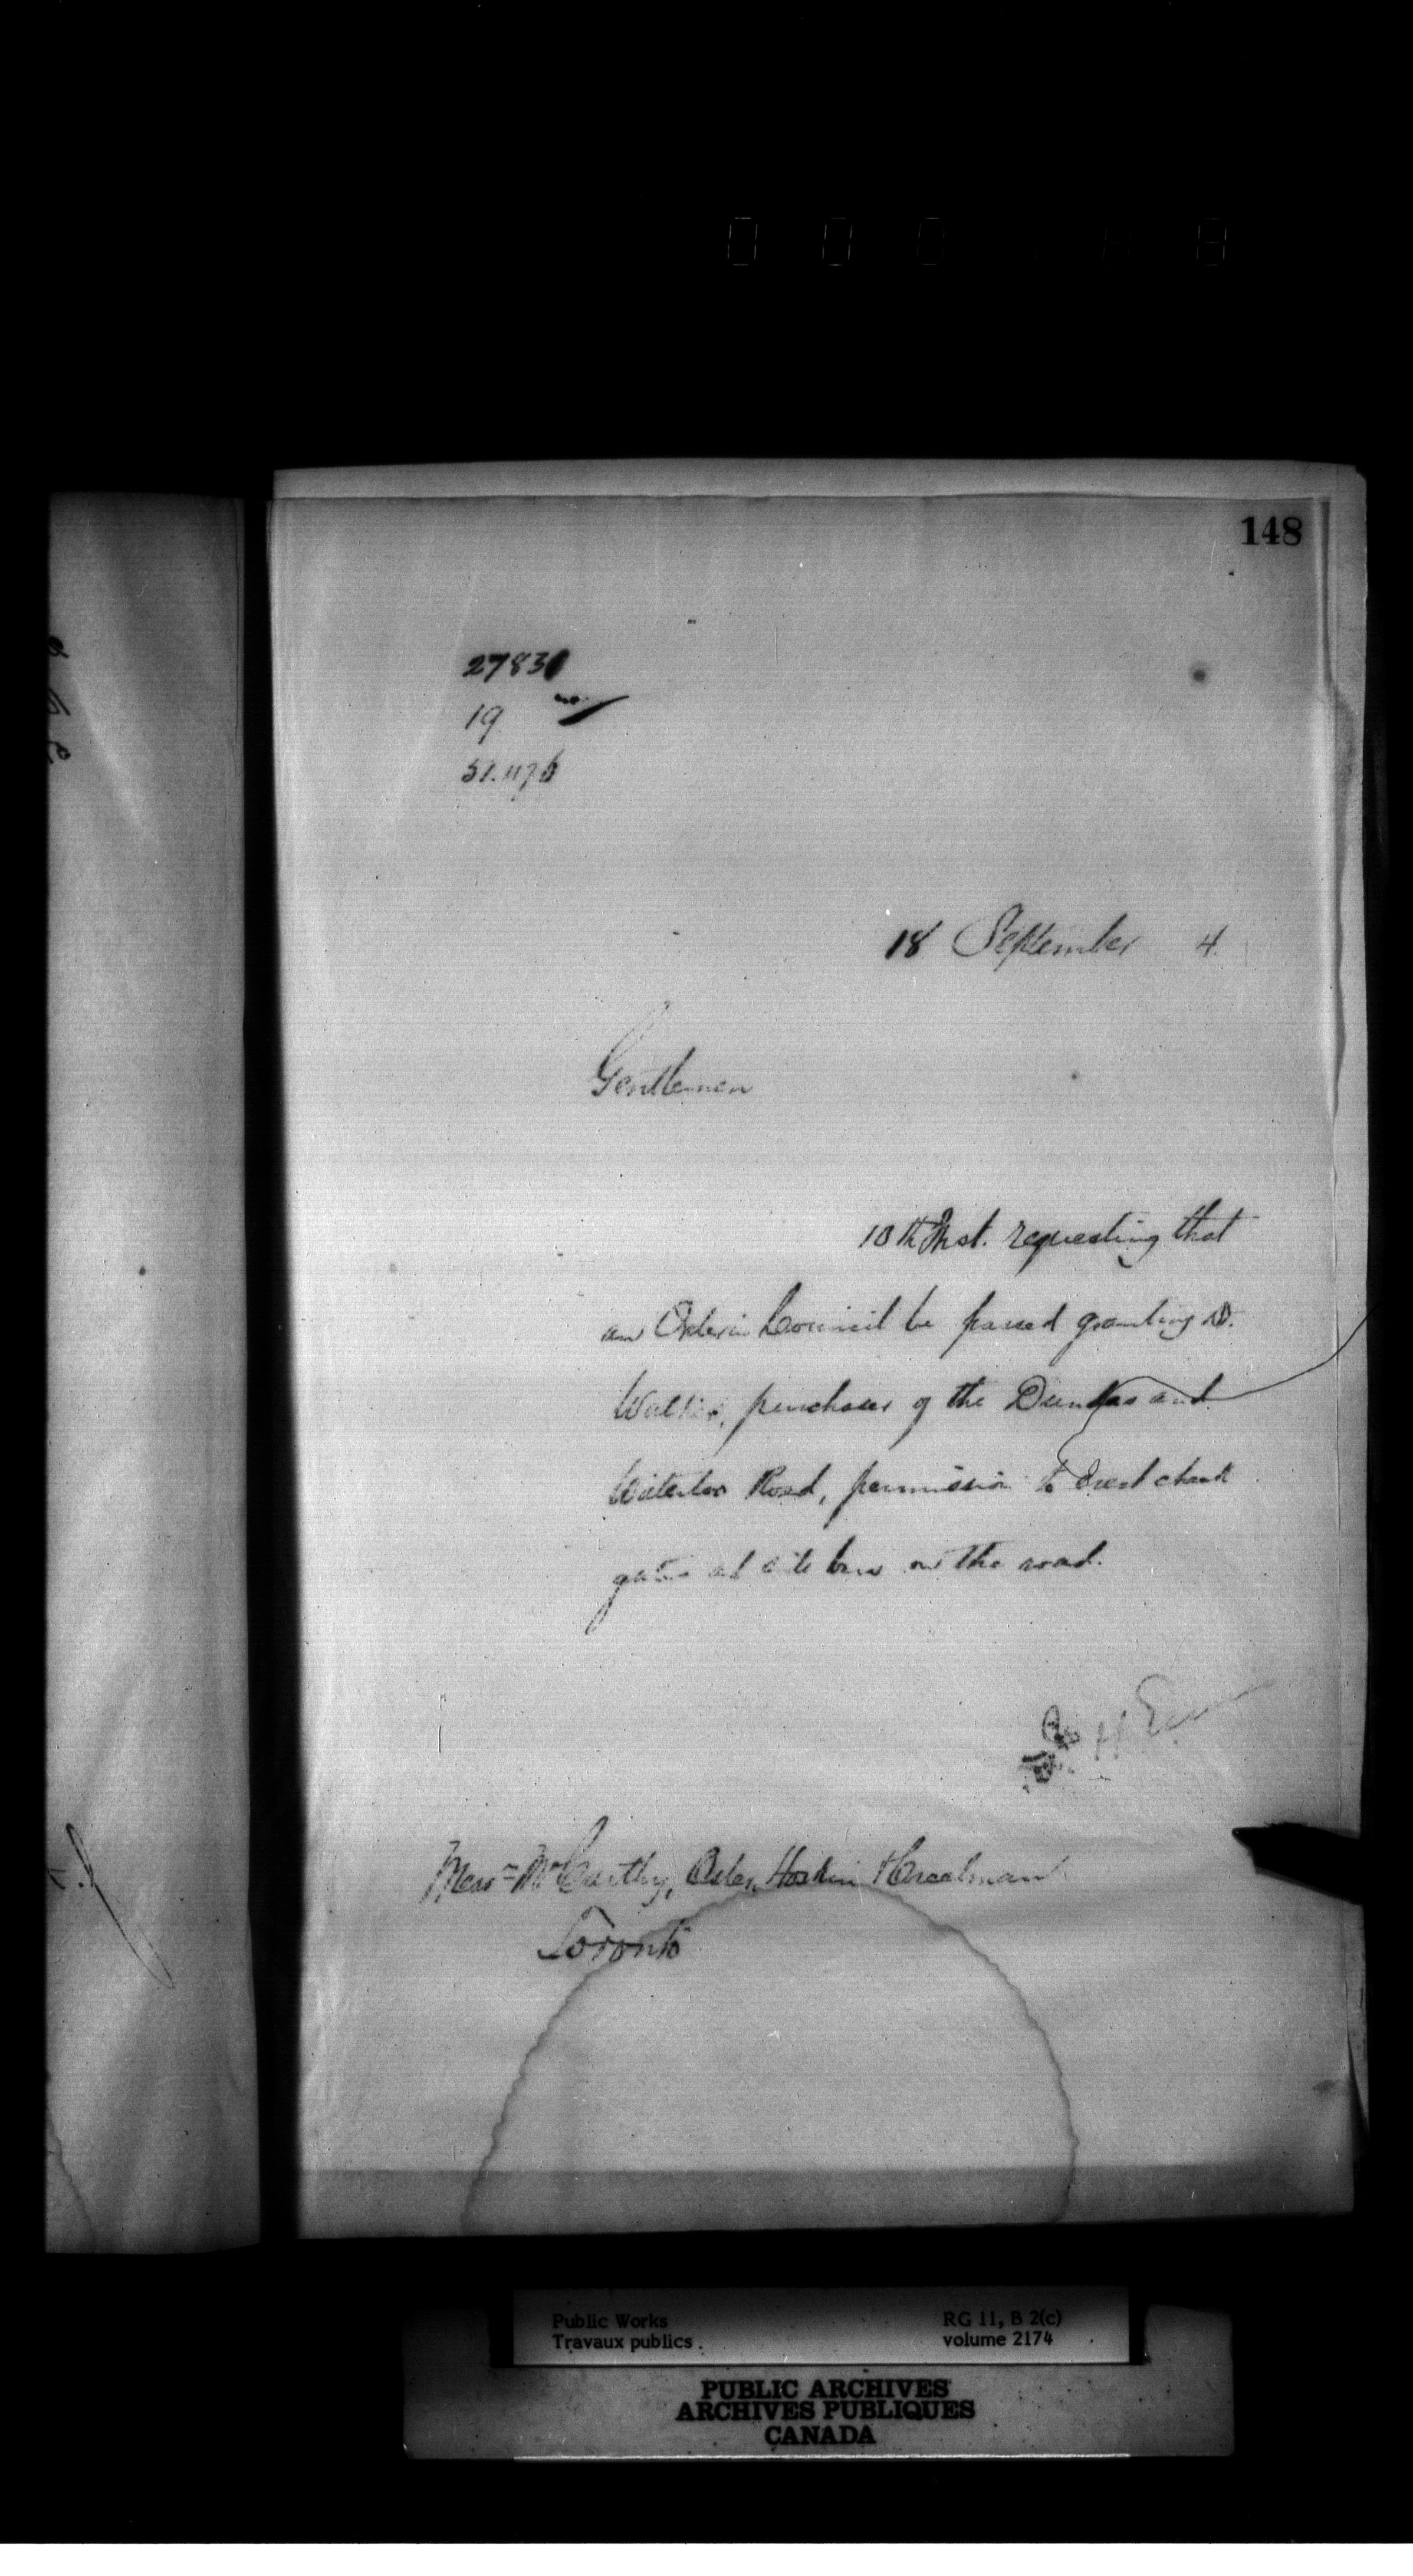 148
27830
19
51.1176
18 September 4.
Gentlemen
10th Inst. requesting that
an Order in Council be passed granting D.
Walker, purchaser of the Dundas and
Waterloo Road, permission to erect check
gates at side lines on the road.
Messrs McCarthy, Osler, Hoskin & Creelman
Toronto
Public Works
Travaux publics
RG 11, B 2(c)
volume 2174
PUBLIC ARCHIVES
ARCHIVES PUBLIQUES
CANADA